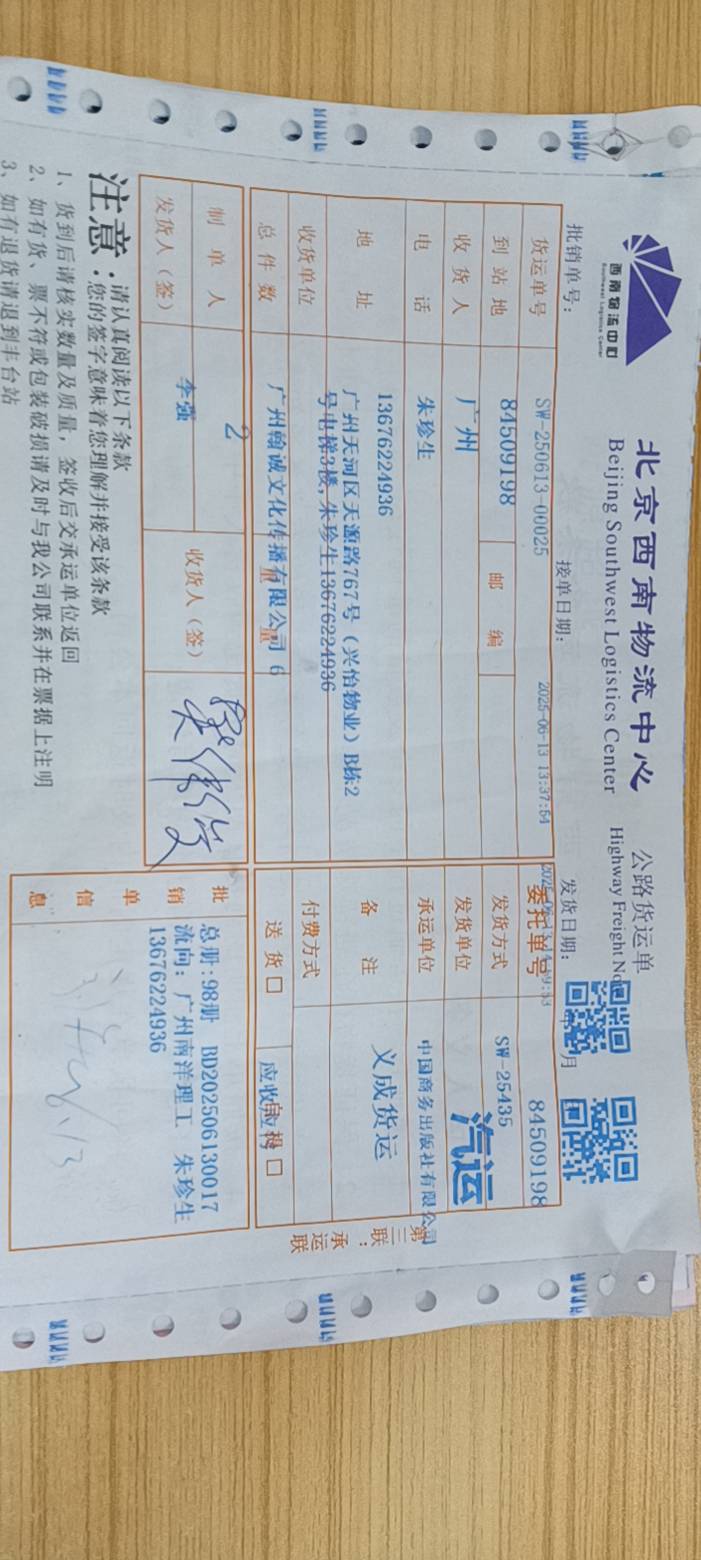 西南物流中心
Southwest Logistics Center
北京西南物流中心
公路货运单
Beijing Southwest Logistics Center
Highway Freight No
批销单号：
接单日期：
2025-06-13 13:37:54
发货日期：
月
货运单号
SW-250613-00025
委托单号
84509198
到站地
84509198
邮编
发货方式
SW-25435
汽运
收货人
广州
发货单位
电话
朱珍生
承运单位
中国商务出版社有限公司
地址
13676224936
广州天河区天源路767号（兴怡物业）B栋2
号电梯3楼，朱珍生13676224936
备注
义成货运
收货单位
付费方式
总件数
广州翰诚文化传播有限公司 6
送货□
第三联：承运联
制单人
2
收货人（签）
发货人（签）
李强
批销单信息
总册:98册 BD202506130017
流向：广州南洋理工 朱珍生
13676224936
注意：
请认真阅读以下条款
您的签字意味着您理解并接受该条款
1、货到后请核实数量及质量，签收后交承运单位返回
2、如有货、票不符或包装破损请及时与我公司联系并在票据上注明
3、如有退货请退到丰台站